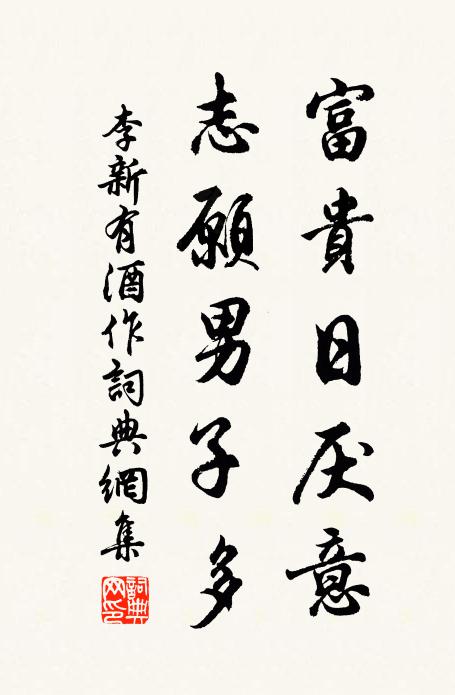 富貴日厌意
志願男子多
李新有酒作詞典網集
詞典網印